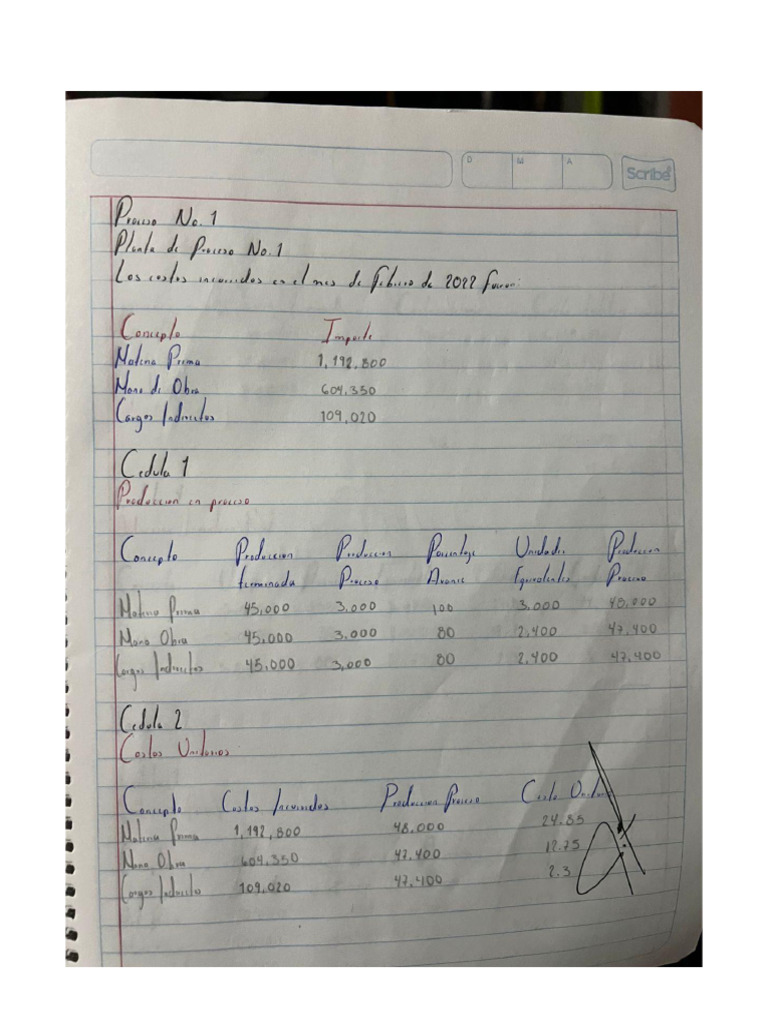 D M A
Scribe
Proceso No. 1
Planta de Proceso No. 1
Los costos incurridos en el mes de Febrero de 2022 fueron:
Concepto Importe
Materia Prima 1,192,800
Mano de Obra 604,350
Cargos Indirectos 109,020
Cedula 1
Produccion en proceso
Concepto Produccion Produccion Porcentaje Unidades Produccion
terminada Proceso Avance Equivalentes Proceso
Materia Prima 45,000 3,000 100 3,000 48,000
Mano Obra 45,000 3,000 80 2,400 47,400
Cargos Indirectos 45,000 3,000 80 2,400 47,400
Cedula 2
Costos Unitarios
Concepto Costos Incurridos Produccion Proceso Costo Unitario
Materia Prima 1,192,800 48,000 24.85
Mano Obra 604,350 47,400 12.75
Cargos Indirectos 109,020 47,400 2.3